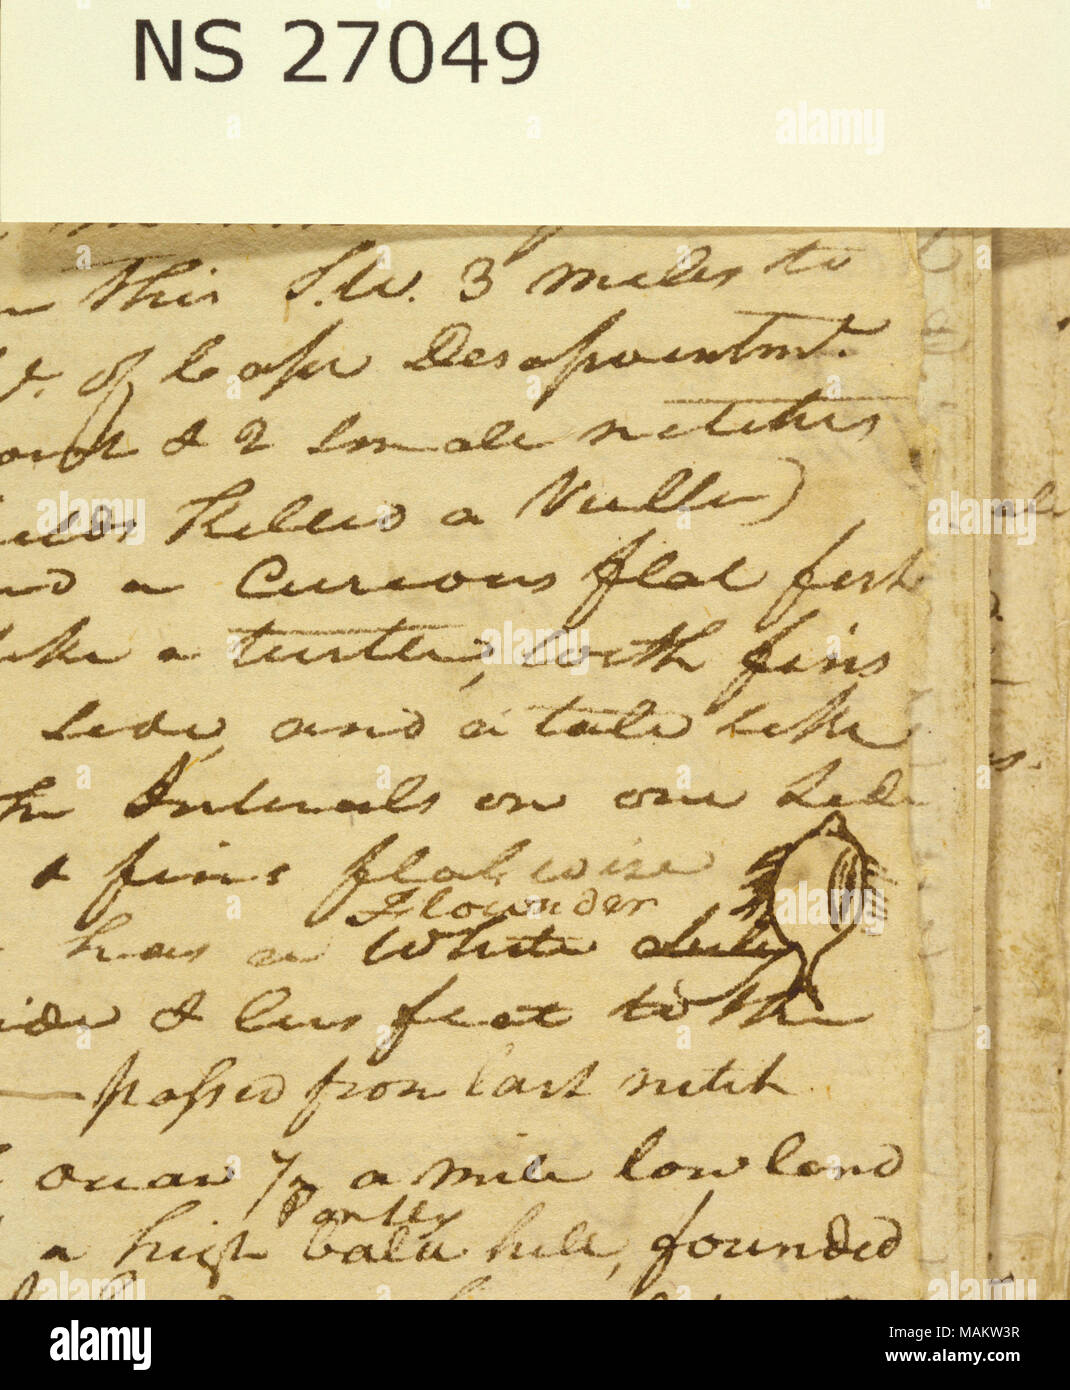 NS 27049
This S.W. 3 miles to
of Cape Desapointmt.
& 2 Small nitches
Killed a Vulter)
a Curious flat fish
like a turtle, with fins
Side, and a tale like
the Internals on one Side
& fins flatwise
Flounder
has a White duley
& lies flat to the
passed from last nitch
ocian 1/2 a mile low land
Partly
a high bald hill, founded
alamy
Image ID: MAKW3R
www.alamy.com